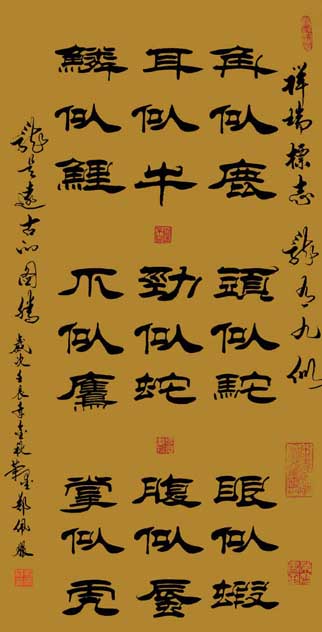 祥瑞標志 龍有九似
角似鹿 頭似駝 眼似蝦
耳似牛 勁似蛇 腹似蜃
鱗似鯉 爪似鷹 掌似虎
龍是遠古的圖騰 歲次壬辰年金秋 鄭佩